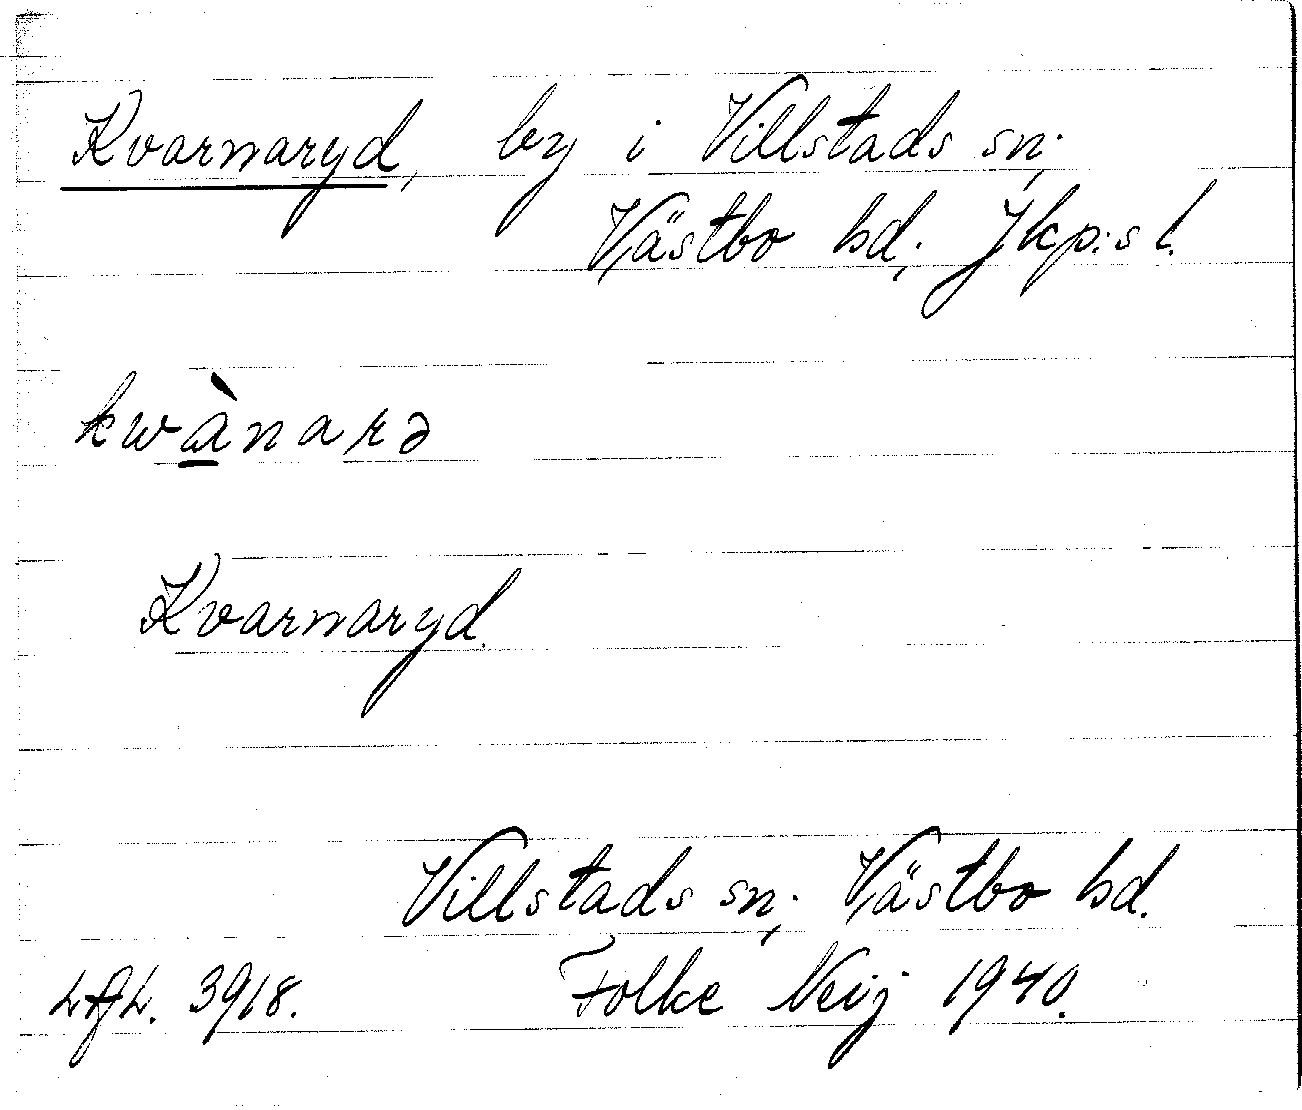 Kvarnaryd, by i Villstads sn;
Västbo hd; Jkp:s l.
kwà̱narə
Kvarnaryd.
Villstads sn; Västbo hd.
Folke Neij 1940.
LAL. 3918.